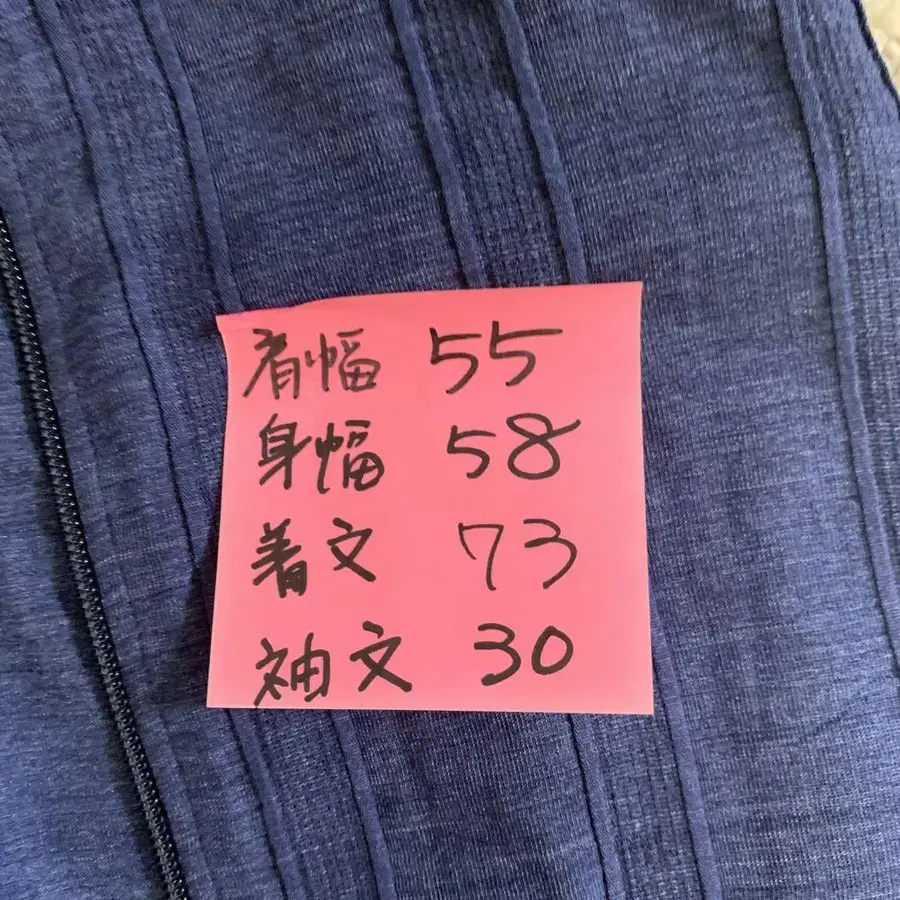 肩幅 55
身幅 58
着文 73
袖文 30